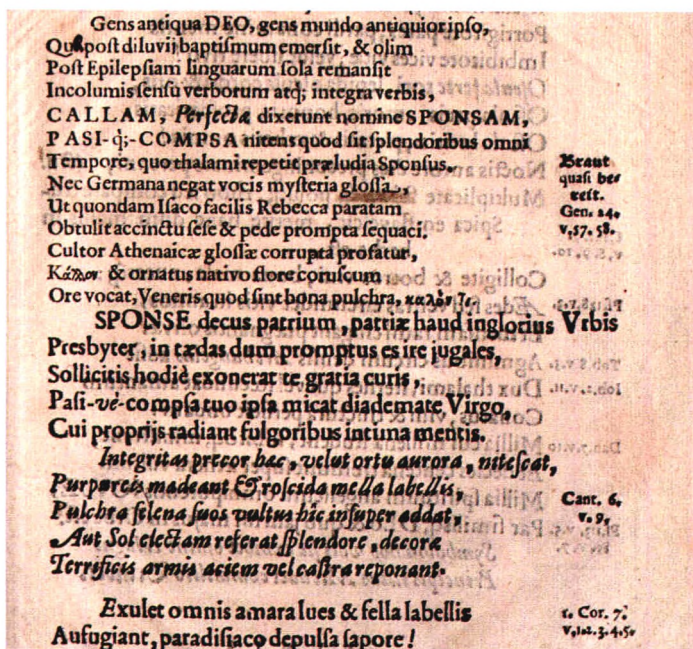 Gens antiqua DEO, gens mundo antiquior ipso,
Quæ post diluvij baptismum emersit, & olim
Post Epilepsiam linguarum sola remansit
Incolumis sensu verborum atq; integra verbis,
CALLAM, Perfectæ dixerunt nomine SPONSAM,
PASI-q́;-COMPSA nitens quod sit splendoribus omni
Tempore, quo thalami repetit præludia Sponsus.
Nec Germana negat vocis mysteria glossa,
Ut quondam Isaco facilis Rebecca paratam
Obtulit accinctu sese & pede prompta sequaci.
Cultor Athenaicæ glossæ corrupta profatur,
& ornatus nativo flore coruscum
Ore vocat, Veneris quod sint bona pulchra, καλόν τε.
Braut
quasi bereit.
Gen. 24.
v. 57. 58.
SPONSE decus patrium, patriæ haud inglorius Vrbis
Presbyter, in tædas dum promptus es ire jugales,
Sollicitis hodiè exonerat te gratia curis,
Pasi-vè-compsa tuo ipsa micat diademate Virgo,
Cui proprijs radiant fulgoribus intima mentis.
Integritas precor hæc, velut ortu aurora, nitescat,
Purpureis madeant & roscida mella labellis,
Pulchra selena suos vultus hîc insuper addat,
Aut Sol electam referat splendore, decoræ
Terrificis armis aciem vel castra reponant.
Cant. 6.
v. 9.
Exulet omnis amara lues & fella labellis
Aufugiant, paradisiaco depulsa sapore!
1. Cor. 7.
v. 1.2.3.4.5.